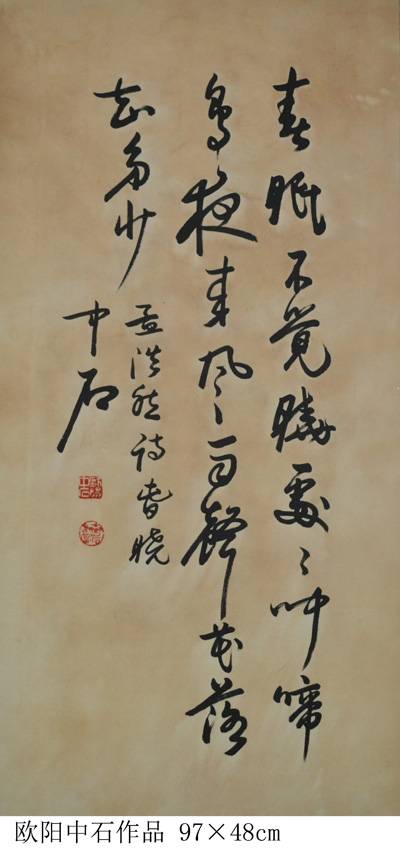 春眠不觉晓處々叫啼
鸟夜来风雨聲花落
知多少
孟浩然诗春晓
中石
欧阳中石作品 97×48cm